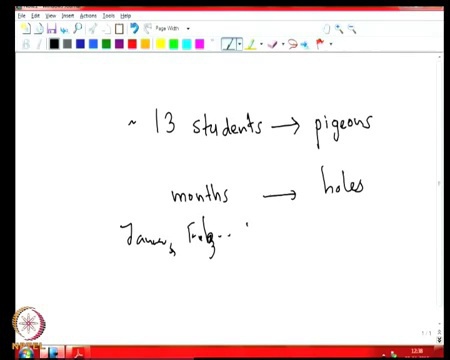 File Edit View Insert Actions Tools Help
Page Width
B
~ 13 students → pigeons
months → holes
1/1
NPTEL
12:38